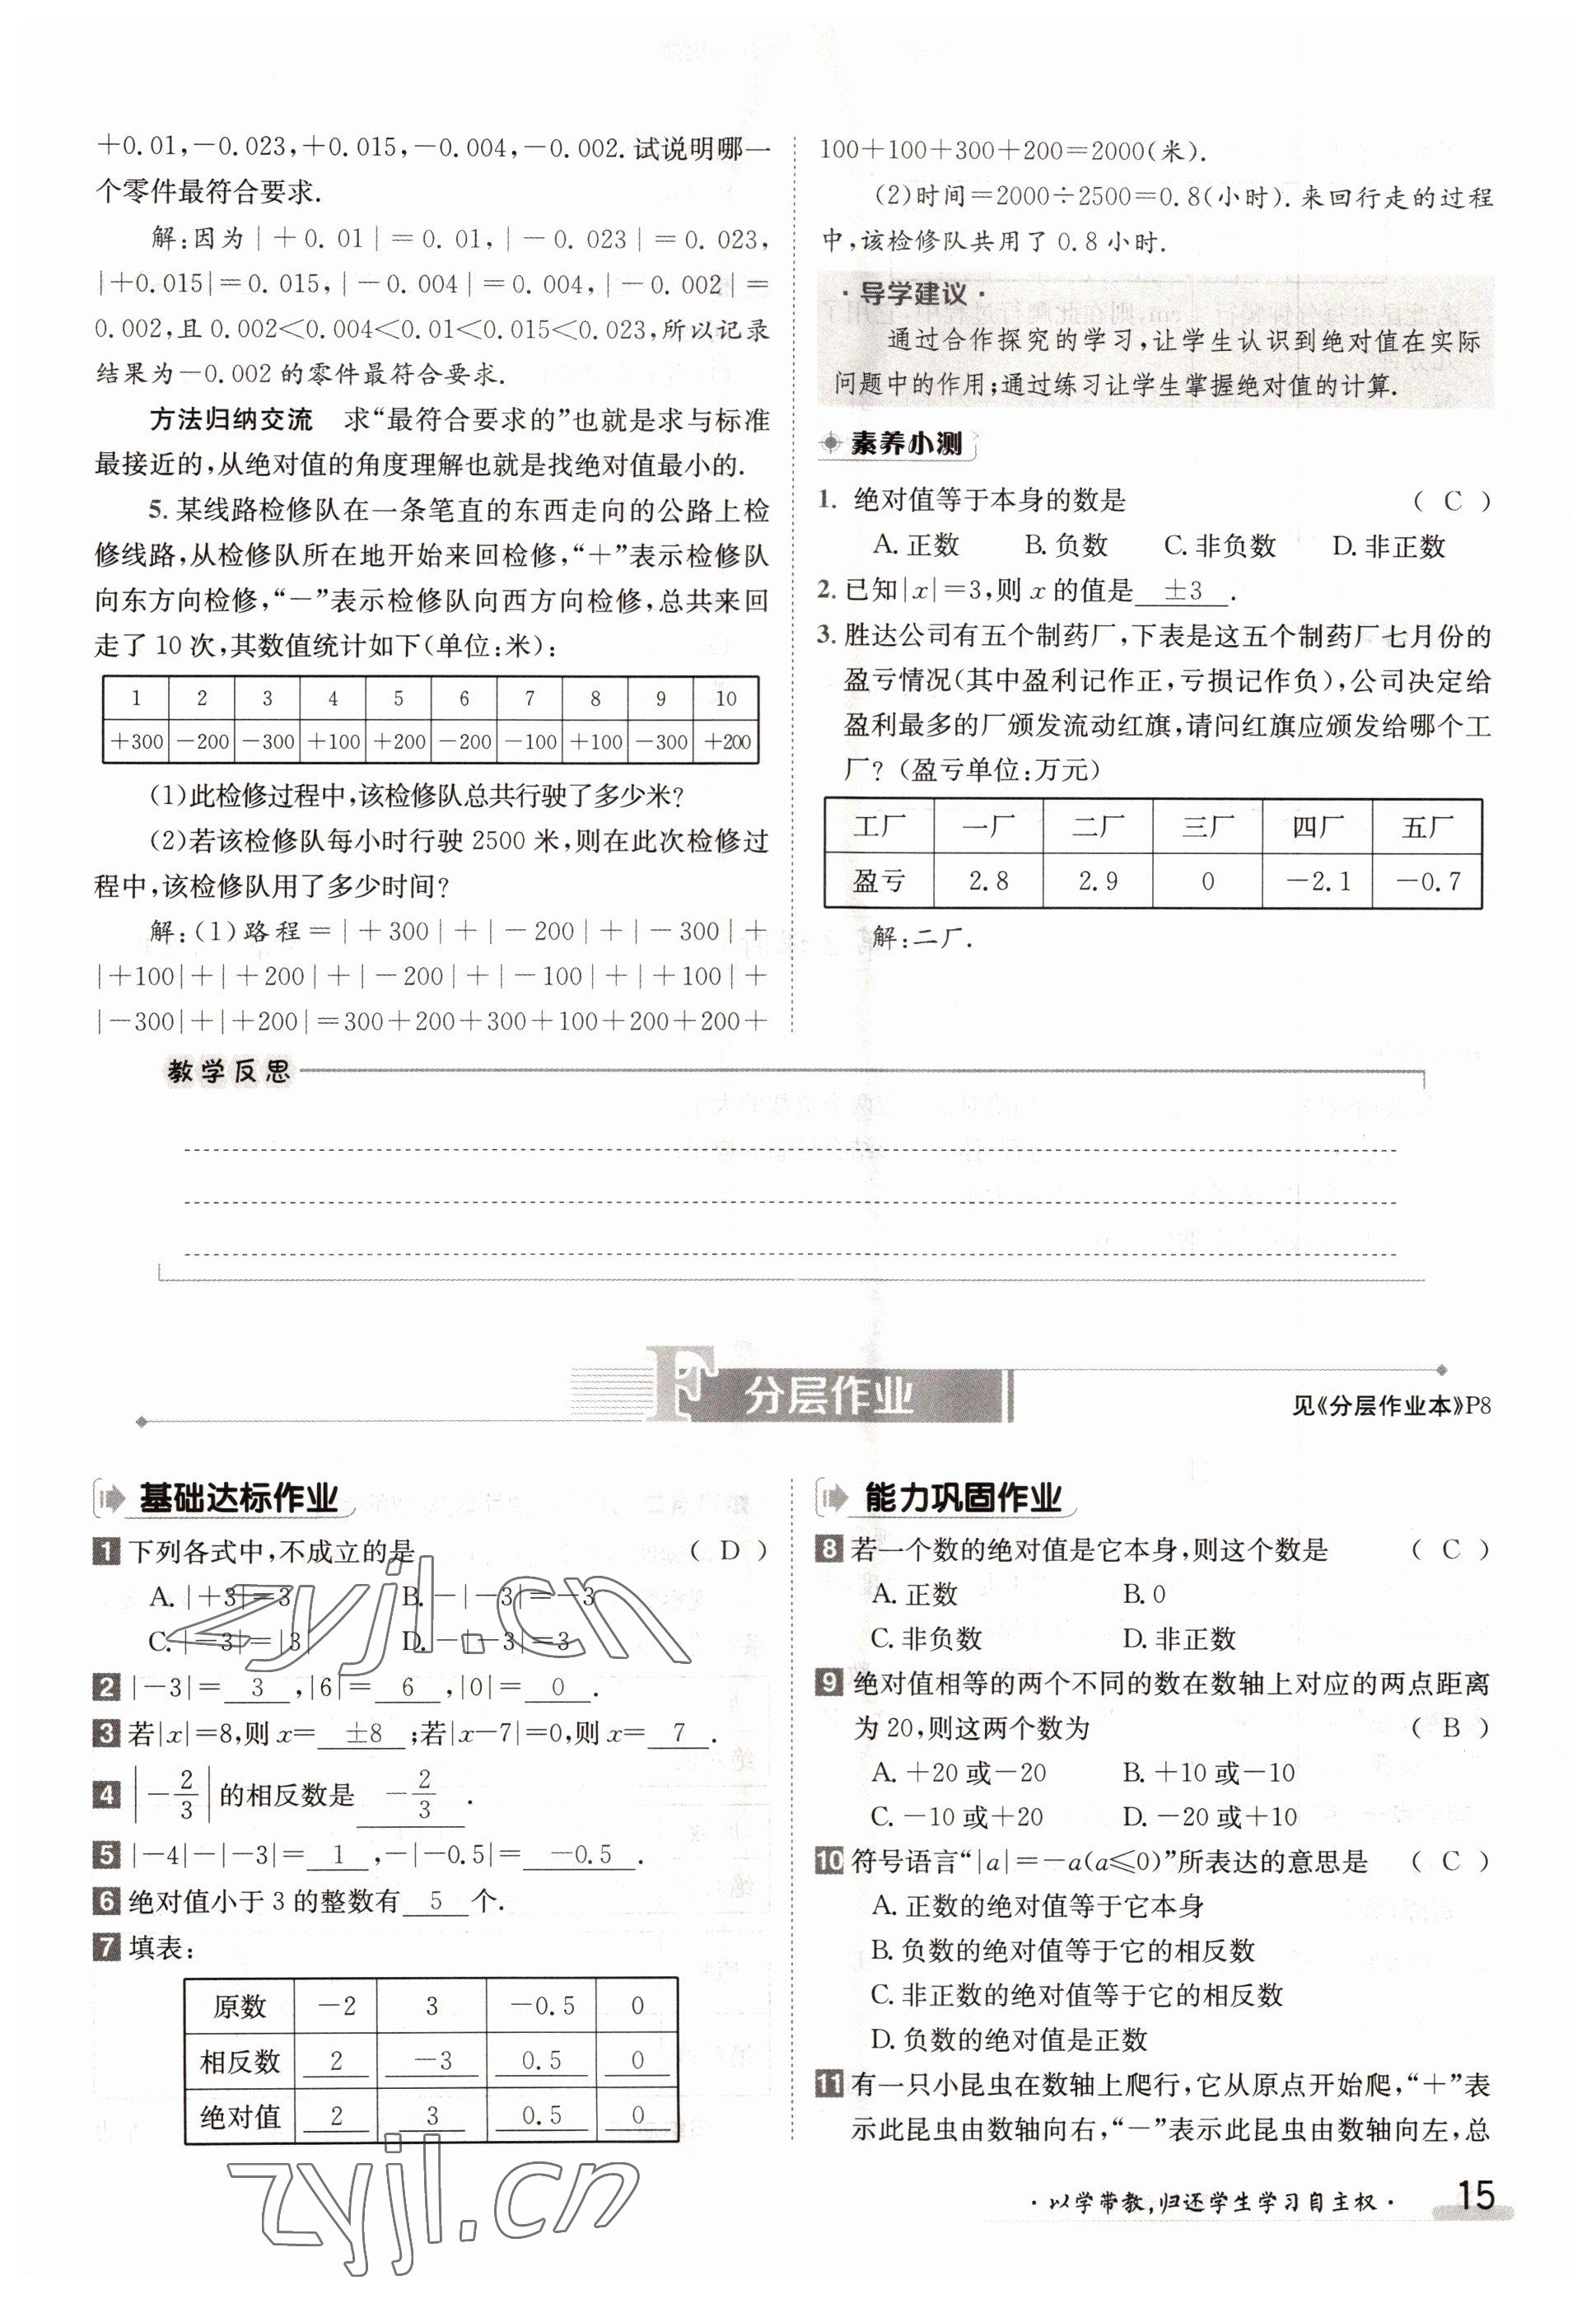 +0.01,-0.023,+0.015,-0.004,-0.002.试说明哪一
个零件最符合要求.
解:因为|+0.01|=0.01,|-0.023|=0.023,
|+0.015|=0.015,|-0.004|=0.004,|-0.002|=
0.002,且0.002<0.004<0.01<0.015<0.023,所以记录
结果为-0.002的零件最符合要求.
方法归纳交流 求“最符合要求的”也就是求与标准
最接近的,从绝对值的角度理解也就是找绝对值最小的.
5.某线路检修队在一条笔直的东西走向的公路上检
修线路,从检修队所在地开始来回检修,“+”表示检修队
向东方向检修,“-”表示检修队向西方向检修,总共来回
走了10次,其数值统计如下(单位:米):
1 2 3 4 5 6 7 8 9 10
+300 -200 -300 +100 +200 -200 -100 +100 -300 +200
(1)此检修过程中,该检修队总共行驶了多少米?
(2)若该检修队每小时行驶2500米,则在此次检修过
程中,该检修队用了多少时间?
解:(1)路程=|+300|+|-200|+|-300|+
|+100|+|+200|+|-200|+|-100|+|+100|+
|-300|+|+200|=300+200+300+100+200+200+
100+100+300+200=2000(米).
(2)时间=2000÷2500=0.8(小时).来回行走的过程
中,该检修队共用了0.8小时.
·导学建议·
通过合作探究的学习,让学生认识到绝对值在实际
问题中的作用;通过练习让学生掌握绝对值的计算.
素养小测
1. 绝对值等于本身的数是 ( C )
A.正数 B.负数 C.非负数 D.非正数
2.已知|x|=3,则x的值是 ±3 .
3.胜达公司有五个制药厂,下表是这五个制药厂七月份的
盈亏情况(其中盈利记作正,亏损记作负),公司决定给
盈利最多的厂颁发流动红旗,请问红旗应颁发给哪个工
厂?(盈亏单位:万元)
工厂 一厂 二厂 三厂 四厂 五厂
盈亏 2.8 2.9 0 -2.1 -0.7
解:二厂.
教学反思
F 分层作业
见《分层作业本》P8
基础达标作业
1 下列各式中,不成立的是 ( D )
A.|+3|=3 B.-|-3|=-3
C.|-3|=|3| D.-|-3|=3
2 |-3|= 3 ,|6|= 6 ,|0|= 0 .
3 若|x|=8,则x= ±8 ;若|x-7|=0,则x= 7 .
4 |-2/3|的相反数是 -2/3 .
5 |-4|-|-3|= 1 ,-|-0.5|= -0.5 .
6 绝对值小于3的整数有 5 个.
7 填表:
原数 -2 3 -0.5 0
相反数 2 -3 0.5 0
绝对值 2 3 0.5 0
能力巩固作业
8 若一个数的绝对值是它本身,则这个数是 ( C )
A.正数 B.0
C.非负数 D.非正数
9 绝对值相等的两个不同的数在数轴上对应的两点距离
为20,则这两个数为 ( B )
A.+20或-20 B.+10或-10
C.-10或+20 D.-20或+10
10 符号语言“|a|=-a(a⩽0)”所表达的意思是 ( C )
A.正数的绝对值等于它本身
B.负数的绝对值等于它的相反数
C.非正数的绝对值等于它的相反数
D.负数的绝对值是正数
11 有一只小昆虫在数轴上爬行,它从原点开始爬,“+”表
示此昆虫由数轴向右,“-”表示此昆虫由数轴向左,总
·以学带教,归还学生学习自主权·
15
zyjl.cn
zyjl.cn